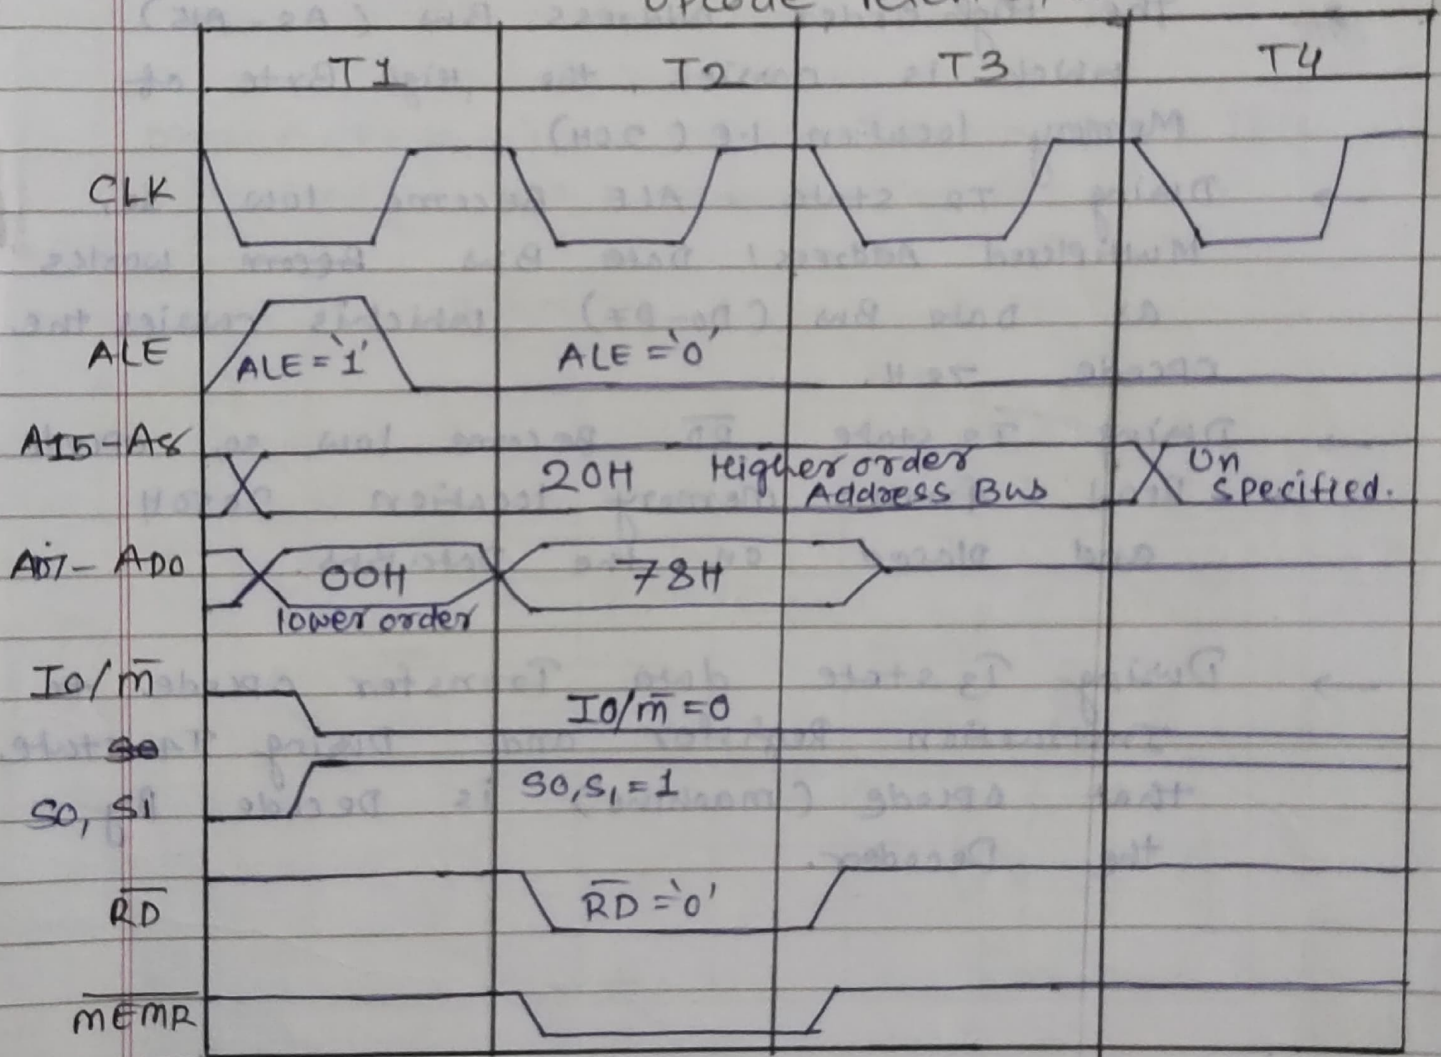 Opcode
T1 T2 T3 T4
CLK
ALE ALE='1' ALE='0'
A15-A8 20H Higher order Address Bus Un specified.
AD7- AD0 00H 78H
lower order
IO/m̅ IO/m̅=0
S0
S0, S1 S0,S1=1
R̅D̅ R̅D̅='0'
M̅E̅M̅R̅